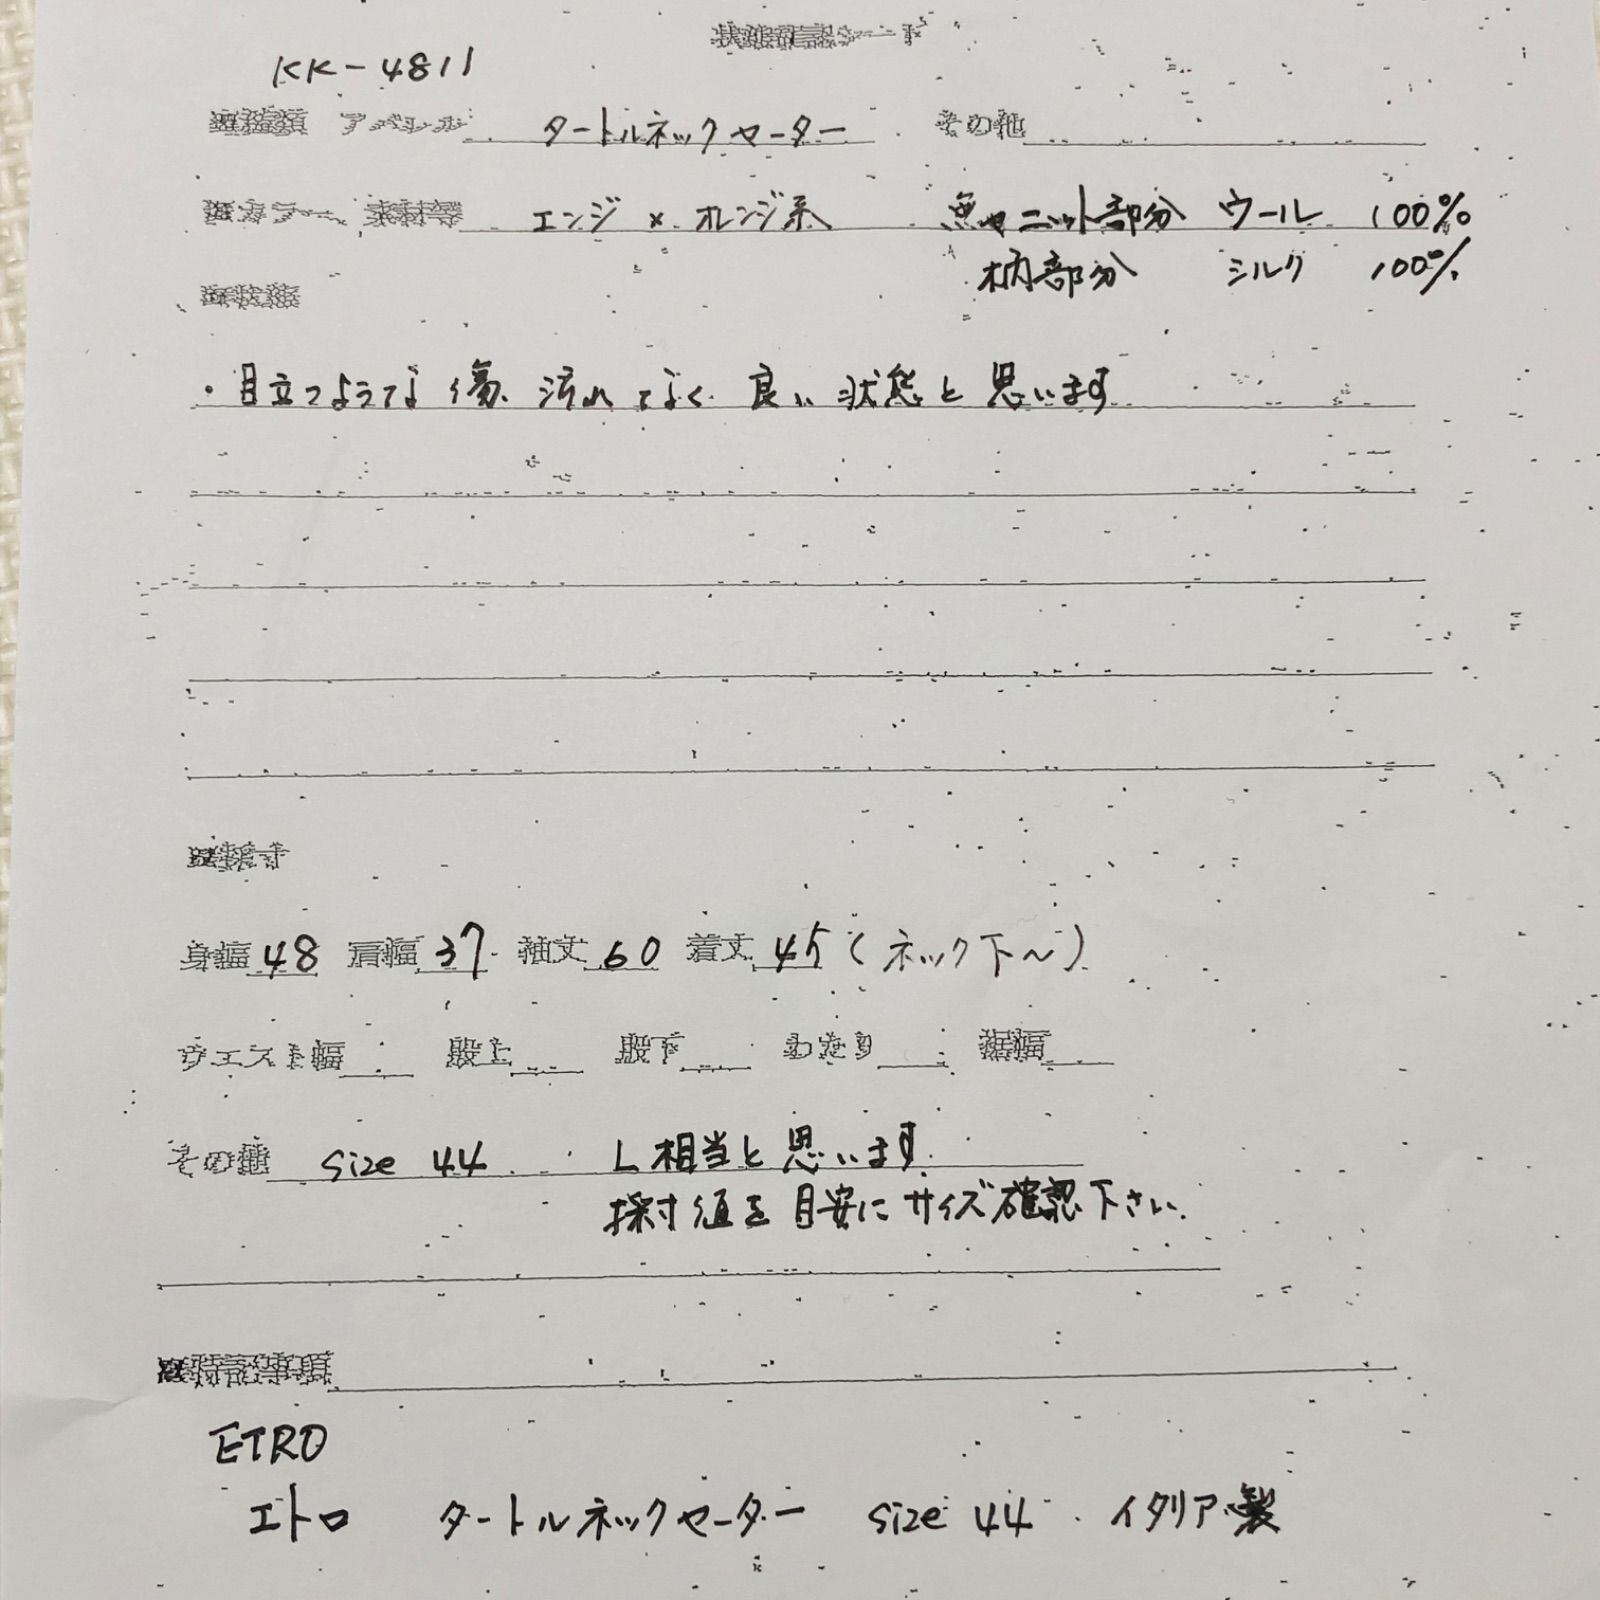 状態確認シート
KK-4811
アパレル タートルネックセーター その他
カラー、素材等 エンジ×オレンジ系 ニット部分 ウール 100%
柄部分 シルク 100%
■状態
・目立つような傷、汚れもなく 良い状態と思います
■採寸
身幅 48 肩幅 37 袖丈 60 着丈 45(ネック下〜)
ウエスト幅 股上 股下 わたり 裾幅
その他 size 44 L相当と思います
採寸値を目安にサイズ確認下さい.
■特記事項
ETRO
エトロ タートルネックセーター size 44 イタリア製